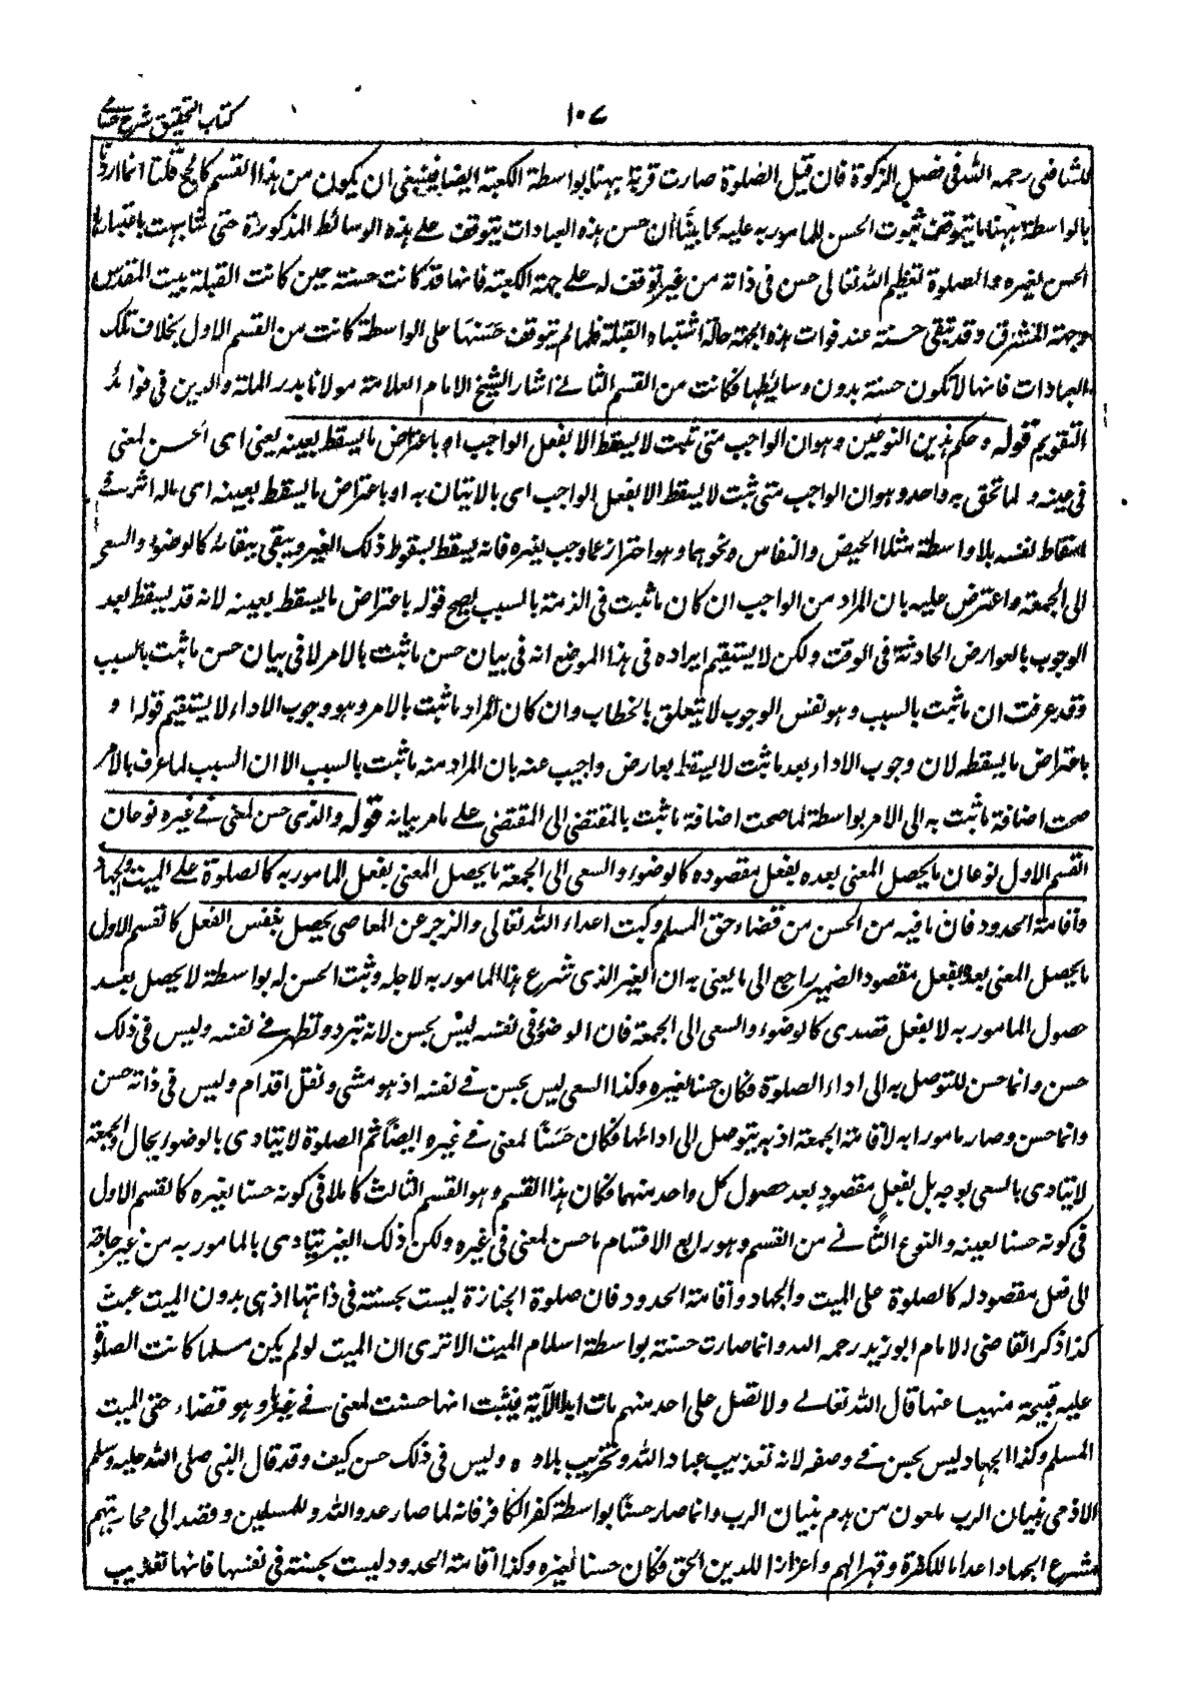 كتاب التحقيق شرح حسامي
١٠٧
للشافعي رحمه الله في فصل الزكوة فان قيل الصلوة صارت قربة ههنا بواسطة الكعبة ايضا فينبغي ان يكون من هذا القسم كالحج قلنا انما اردنا
بالواسطة ههنا ما يتوقف ثبوت الحسن للمامور به عليه كما بينا ان حسن هذه العبادات يتوقف على هذه الوسائط المذكورة حتى شابهت باعتبارها
الحسن لغيره والصلوة تعظيم الله تعالى حسن في ذاته من غير توقف له على جهة الكعبة فانها قد كانت حسنة حين كانت القبلة بيت المقدس
وجهة المشرق وقد تبقى حسنة عند فوات هذه الجهة حالة اشتباه القبلة فلما لم يتوقف حسنها على الواسطة كانت من القسم الاول بخلاف تلك
العبادات فانها لا تكون حسنة بدون وسائطها فكانت من القسم الثاني اشار الشيخ الامام العلامة مولانا بدر الملة والدين في فوائد
التقويم قوله وحكم هذين النوعين وهو ان الواجب متى ثبت لا يسقط الا بفعل الواجب او باعتراض ما يسقط بعينه يعنى اى الحسن لمعنى
في عينه و لما تحق به واحد وهو ان الواجب متى ثبت لا يسقط الا بفعل الواجب اى بالاتيان به او باعتراض ما يسقط بعينه اى ماله اثر في
اسقاط نفسه بلا واسطة مثل الحيض والنفاس ونحوهما وهو احتراز عما وجب لغيره فانه يسقط بسقوط ذلك الغير ويبقى ببقائه كالوضوء والسعى
الى الجمعة واعترض عليه بان المراد من الواجب ان كان ما ثبت في الذمة بالسبب يصح قوله باعتراض ما يسقط بعينه لانه قد يسقط بعد
الوجوب بالعوارض الحادثة في الوقت ولكن لا يستقيم ايراده في هذا الموضع انه في بيان حسن ما ثبت بالامر لا في بيان حسن ما ثبت بالسبب
وقد عرفت ان ما ثبت بالسبب وهو نفس الوجوب لا يتعلق بالخطاب وان كان المراد ما ثبت بالامر وهو وجوب الاداء لا يستقيم قوله او
باعتراض ما يسقطه لان وجوب الاداء بعد ما ثبت لا يسقط بعارض واجيب عنه بان المراد منه ما ثبت بالسبب الا ان السبب لما عرف بالامر
صحت اضافة ما ثبت به الى الامر بواسطة لما صحت اضافة ما ثبت بالمقتضى الى المقتضي على ما مر بيانه قوله والذى حسن لمعنى في غيره نوعان
القسم الاول نوعان ما يحصل المعنى بعده بفعل مقصوده كالوضوء والسعى الى الجمعة ما يحصل المعنى بفعل المامور به كالصلوة على الميت والجهاد
واقامة الحدود فان ما فيه من الحسن من قضاء حق المسلم وكبت اعداء الله تعالى والزجر عن المعاصى يحصل بنفس الفعل كالقسم الاول
ما يحصل المعنى بعده بفعل مقصود الضمير راجع الى ما يعنى به ان الغير الذى شرع هذا المامور به لاجله وثبت الحسن له بواسطة لا يحصل بعد
حصول المامور به لا بفعل قصدى كالوضوء والسعى الى الجمعة فان الوضوء في نفسه ليس بحسن لانه تبرد وتطهر في نفسه وليس في ذلك
حسن وانما حسن للتوصل به الى اداء الصلوة فكان حسنا لغيره وكذا السعى ليس بحسن في نفسه اذ هو مشى ونقل اقدام وليس في ذاته حسن
وانما حسن وصار مامورا به لاقامة الجمعة اذ به يتوصل الى ادائها فكان حسنا لمعنى في غيره ايضا ثم الصلوة لا يتادى بالوضوء بحال والجمعة
لا يتادى بالسعى بوجه بل بفعل مقصود بعد حصول كل واحد منهما فكان هذا القسم وهو القسم الثالث كاملا في كونه حسنا لغيره كالقسم الاول
في كونه حسنا لعينه والنوع الثاني من القسم وهو رابع الاقسام ما حسن لمعنى في غيره ولكن ذلك الغير يتادى بالمامور به من غير حاجة
الى فعل مقصود له كالصلوة على الميت والجهاد واقامة الحدود فان صلوة الجنازة ليست بحسنة في ذاتها اذ هى بدون الميت عبث
كذا ذكر القاضى الامام ابو زيد رحمه الله وانما صارت حسنة بواسطة اسلام الميت الا ترى ان الميت لو لم يكن مسلما كانت الصلوة
عليه قبيحة منهيا عنها قال الله تعالى ولا تصل على احد منهم مات ابدا الآية فيثبت انها حسنت لمعنى في غيرها وهو قضاء حق الميت
المسلم وكذا الجهاد ليس بحسن في وصفه لانه تعذيب عباد الله وتخريب بلاده وليس في ذلك حسن كيف وقد قال النبى صلى الله عليه وسلم
الادمى بنيان الرب ملعون من هدم بنيان الرب وانما صار حسنا بواسطة كفر الكافر فانه لما صار عدو الله وللمسلمين وقصد الى محاربتهم
شرع الجهاد اعداما للكفرة وقهرا لهم واعزازا للدين الحق فكان حسنا لغيره وكذا اقامة الحدود ليست بحسنة في نفسها فانها تعذيب